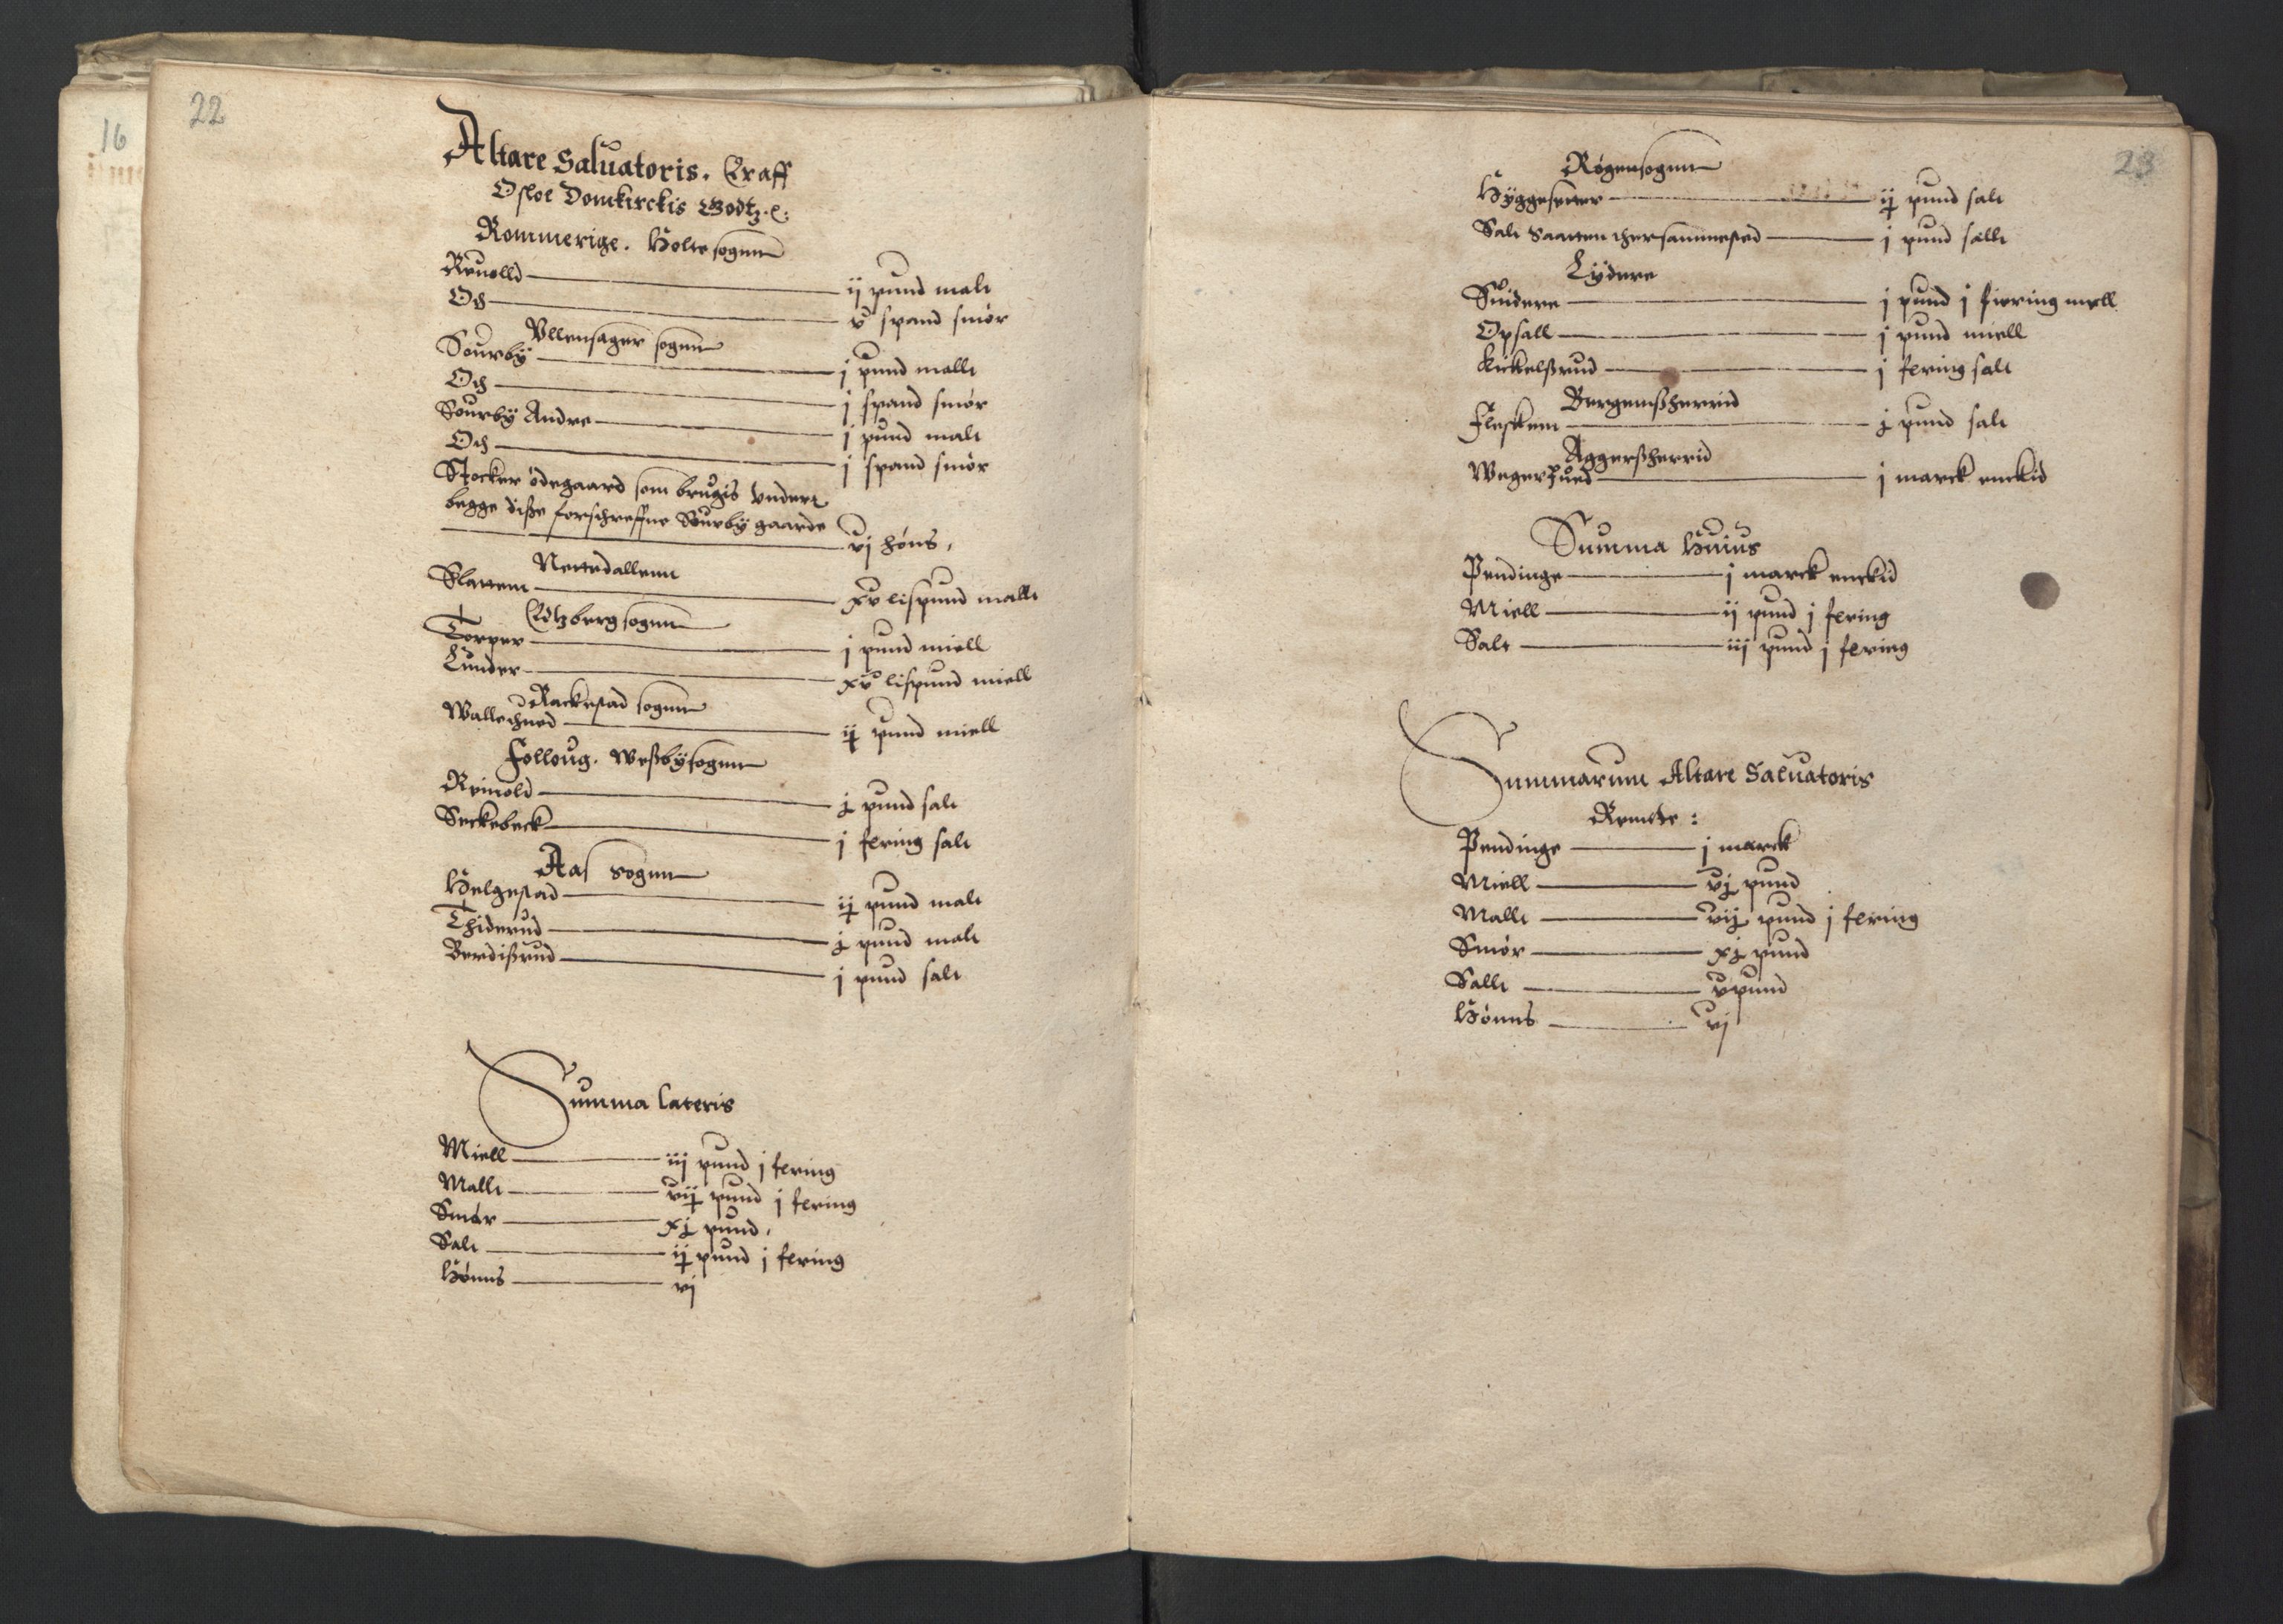 22
16
Altare Saluatoris. Eraff
Osloe Domkirckis Godtz.
Rommerige. Holte sognn
Reuolld — ij pund malt
Och — v spand smør
Vllensager sognn
Sourbÿ — j pund mallt
Och — j spand smør
Sourbÿ Andre — j pund malt
Och — j spand smør
Stocker ødegaard som brugis vndert
begge disse forschreffne Sourbÿ gaarde
— vj høns,
Nettedallenn
Slattem — xv lispund mallt
Edtzberg sognn
Torper — j pund miell
Lunder — xv lispund miell
Rackestad sognn
Walle — ij pund miell
Folloug. Weszbÿ sognn
Reinold — j pund salt
Seckebeck — j fering salt
Aas sognn
Helgestad — ij pund malt
Thiderud — j pund malt
Berdiszrud — j pund salt
Summa lateris
Miell — iij pund j fering
Mallt — vij pund j fering
Smør — xj pund,
Salt — ij pund j fering
Hønns — vj
23
Røgensognn
Hÿggesetter — ij pund salt
Salt Saatten ther sammested — j pund sallt
Lÿdere
Suidere — j pund j fiering mell
Opsall — j pund miell
Kickelszrud — j fering salt
Bergemszherrid
Fleskem — j pund salt
Aggerszherrid
Weger — j marck enckid
Summa Huius
Pendinge — j marck enckid
Miell — ij pund j fering
Salt — iij pund j fering
Summarum Altare Saluatoris
Rentte :
Pendinge — j marck
Miell — vj pund
Mallt — vij pund j fering
Smør — xj pund
Sallt — v pund
Hønns — vj